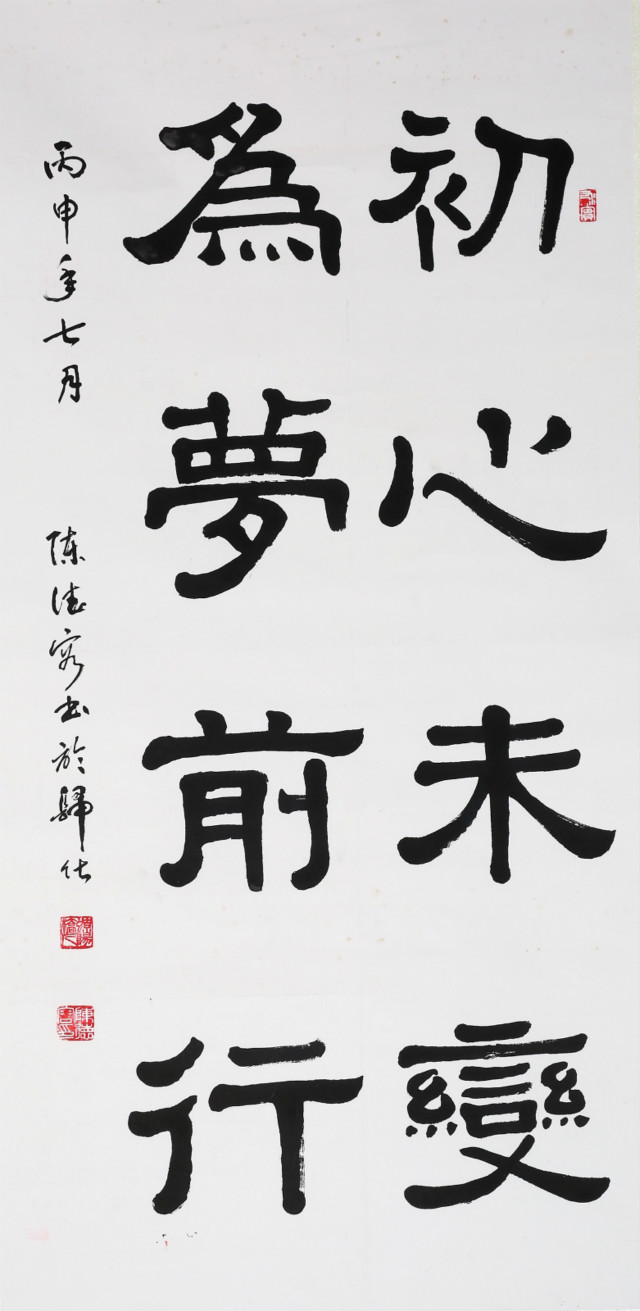 初心未變
為夢前行
丙申年七月
陳德容書於歸仕